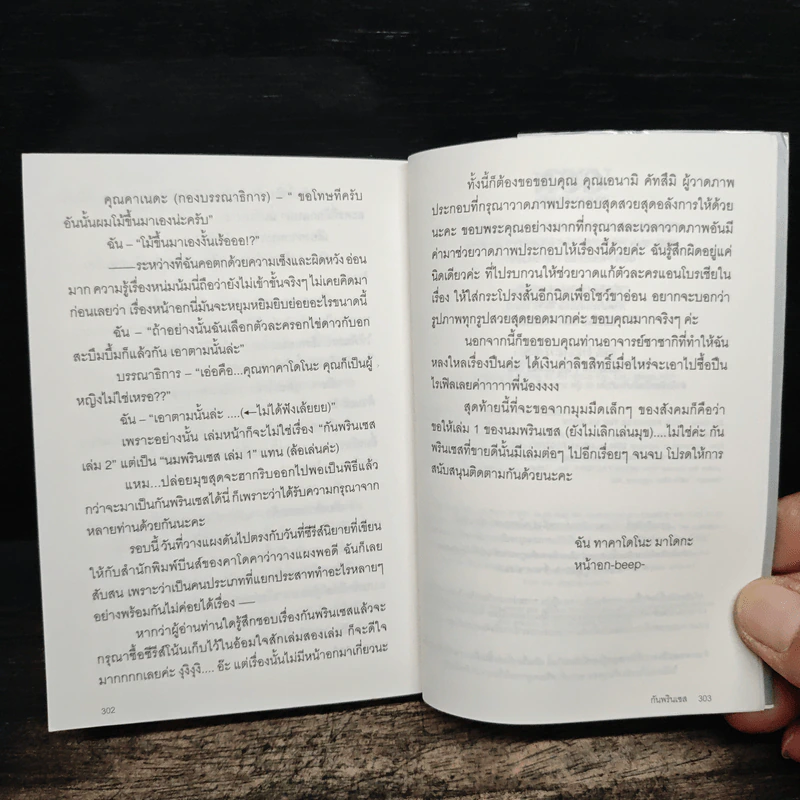 คุณคาเนดะ (กองบรรณาธิการ) – “ ขอโทษทีครับ
อันนั้นผมโม้ขึ้นมาเองน่ะครับ”
ฉัน – “โม้ขึ้นมาเองงั้นเร้อออ!?”
——ระหว่างที่ฉันคอตกด้วยความเซ็งและผิดหวัง อ่อน
มาก ความรู้เรื่องหนุ่มนมนี่ถือว่ายังไม่เข้าขั้นจริงๆ ไม่เคยคิดมา
ก่อนเลยว่า เรื่องหน้าอกนี่มันจะหยุมหยิมยิบย่อยอะไรขนาดนี้
ฉัน – “ถ้าอย่างนั้นฉันเลือกตัวละครอกไข่ดาวกับอก
สะบึมบึ้มก็แล้วกัน เอาตามนั้นล่ะ”
บรรณาธิการ – “เอ่อคือ...คุณทาคาโดโนะ คุณก็เป็นผู้
หญิงไม่ใช่เหรอ??”
ฉัน – “เอาตามนั้นล่ะ ....(←ไม่ได้ฟังเล้ยยย)”
เพราะอย่างนั้น เล่มหน้าก็จะไม่ใช่เรื่อง “กันพรินเซส
เล่ม 2” แต่เป็น “นมพรินเซส เล่ม 1” แทน (ล้อเล่นค่ะ)
แหม...ปล่อยมุขสุดจะฮากริบออกไปพอเป็นพิธีแล้ว
กว่าจะมาเป็นกันพรินเซสได้นี่ ก็เพราะว่าได้รับความกรุณาจาก
หลายท่านด้วยกันนะคะ
รอบนี้ วันที่วางแผงดันไปตรงกับวันที่ซีรีส์นิยายที่เขียน
ให้กับสำนักพิมพ์บีนส์ของคาโดคาว่าวางแผงพอดี ฉันก็เลย
สับสน เพราะว่าเป็นคนประเภทที่แยกประสาททำอะไรหลายๆ
อย่างพร้อมกันไม่ค่อยได้เรื่อง —
หากว่าผู้อ่านท่านใดรู้สึกชอบเรื่องกันพรินเซสแล้วจะ
กรุณาซื้อซีรีส์โน้นเก็บไว้ในอ้อมใจสักเล่มสองเล่ม ก็จะดีใจ
มากกกกเลยค่ะ งุงิงุงิ.... อ๊ะ แต่เรื่องนั้นไม่มีหน้าอกมาเกี่ยวนะ
302
ทั้งนี้ก็ต้องขอขอบคุณ คุณเอนามิ คัทสึมิ ผู้วาดภาพ
ประกอบที่กรุณาวาดภาพประกอบสุดสวยสุดอลังการให้ด้วย
นะคะ ขอบพระคุณอย่างมากที่กรุณาสละเวลาวาดภาพอันมี
ค่ามาช่วยวาดภาพประกอบให้เรื่องนี้ด้วยค่ะ ฉันรู้สึกผิดอยู่แค่
นิดเดียวค่ะ ที่ไปรบกวนให้ช่วยวาดแก้ตัวละครแอนโบรเซียใน
เรื่อง ให้ใส่กระโปรงสั้นอีกนิดเพื่อโชว์ขาอ่อน อยากจะบอกว่า
รูปภาพทุกรูปสวยสุดยอดมากค่ะ ขอบคุณมากจริงๆ ค่ะ
นอกจากนี้ก็ขอขอบคุณท่านอาจารย์ซาซากิที่ทำให้ฉัน
หลงใหลเรื่องปืนค่ะ ได้เงินค่าลิขสิทธิ์เมื่อไหร่จะเอาไปซื้อปืน
ไรเฟิลเลยค่าาาาาพี่น้องงงง
สุดท้ายนี้ที่จะขอจากมุมมืดเล็กๆ ของสังคมก็คือว่า
ขอให้เล่ม 1 ของนมพรินเซส (ยังไม่เลิกเล่นมุข)....ไม่ใช่ค่ะ กัน
พรินเซสที่ขายดีนั้นมีเล่มต่อๆ ไปอีกเรื่อยๆ จนจบ โปรดให้การ
สนับสนุนติดตามกันด้วยนะคะ
ฉัน ทาคาโดโนะ มาโดกะ
หน้าอก-beep-
กันพรินเซส 303